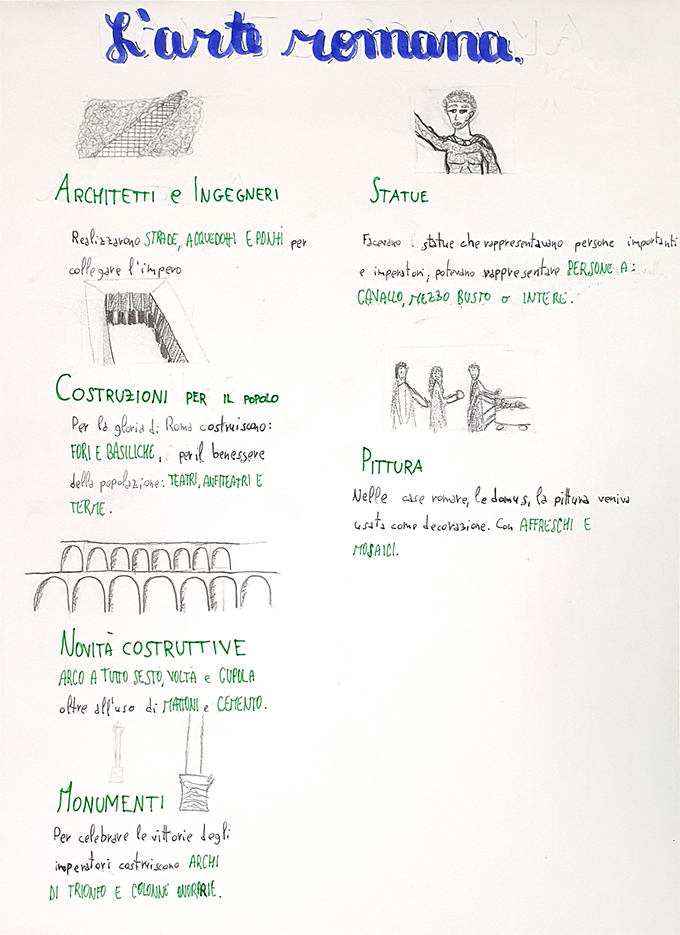 L'arte romana.
ARCHITETTI e INGEGNERI
Realizzarono STRADE, ACQUEDOTTI E PONTI per
collegare l'impero
COSTRUZIONI PER IL POPOLO
Per la gloria di Roma costruiscono:
FORI E BASILICHE, per il benessere
della popolazione: TEATRI, ANFITEATRI E
TERME.
NOVITÀ COSTRUTTIVE
ARCO A TUTTO SESTO, VOLTA e CUPOLA
oltre all'uso di MATTONI e CEMENTO.
MONUMENTI
Per celebrare le vittorie degli
imperatori costruiscono ARCHI
DI TRIONFO E COLONNE ONORARIE.
STATUE
Facevano statue che rappresentavano persone importanti
e imperatori, potevano rappresentare PERSONE A:
CAVALLO, MEZZO BUSTO o INTERE.
PITTURA
Nelle case romane, le domus, la pittura veniva
usata come decorazione. Con AFFRESCHI E
MOSAICI.